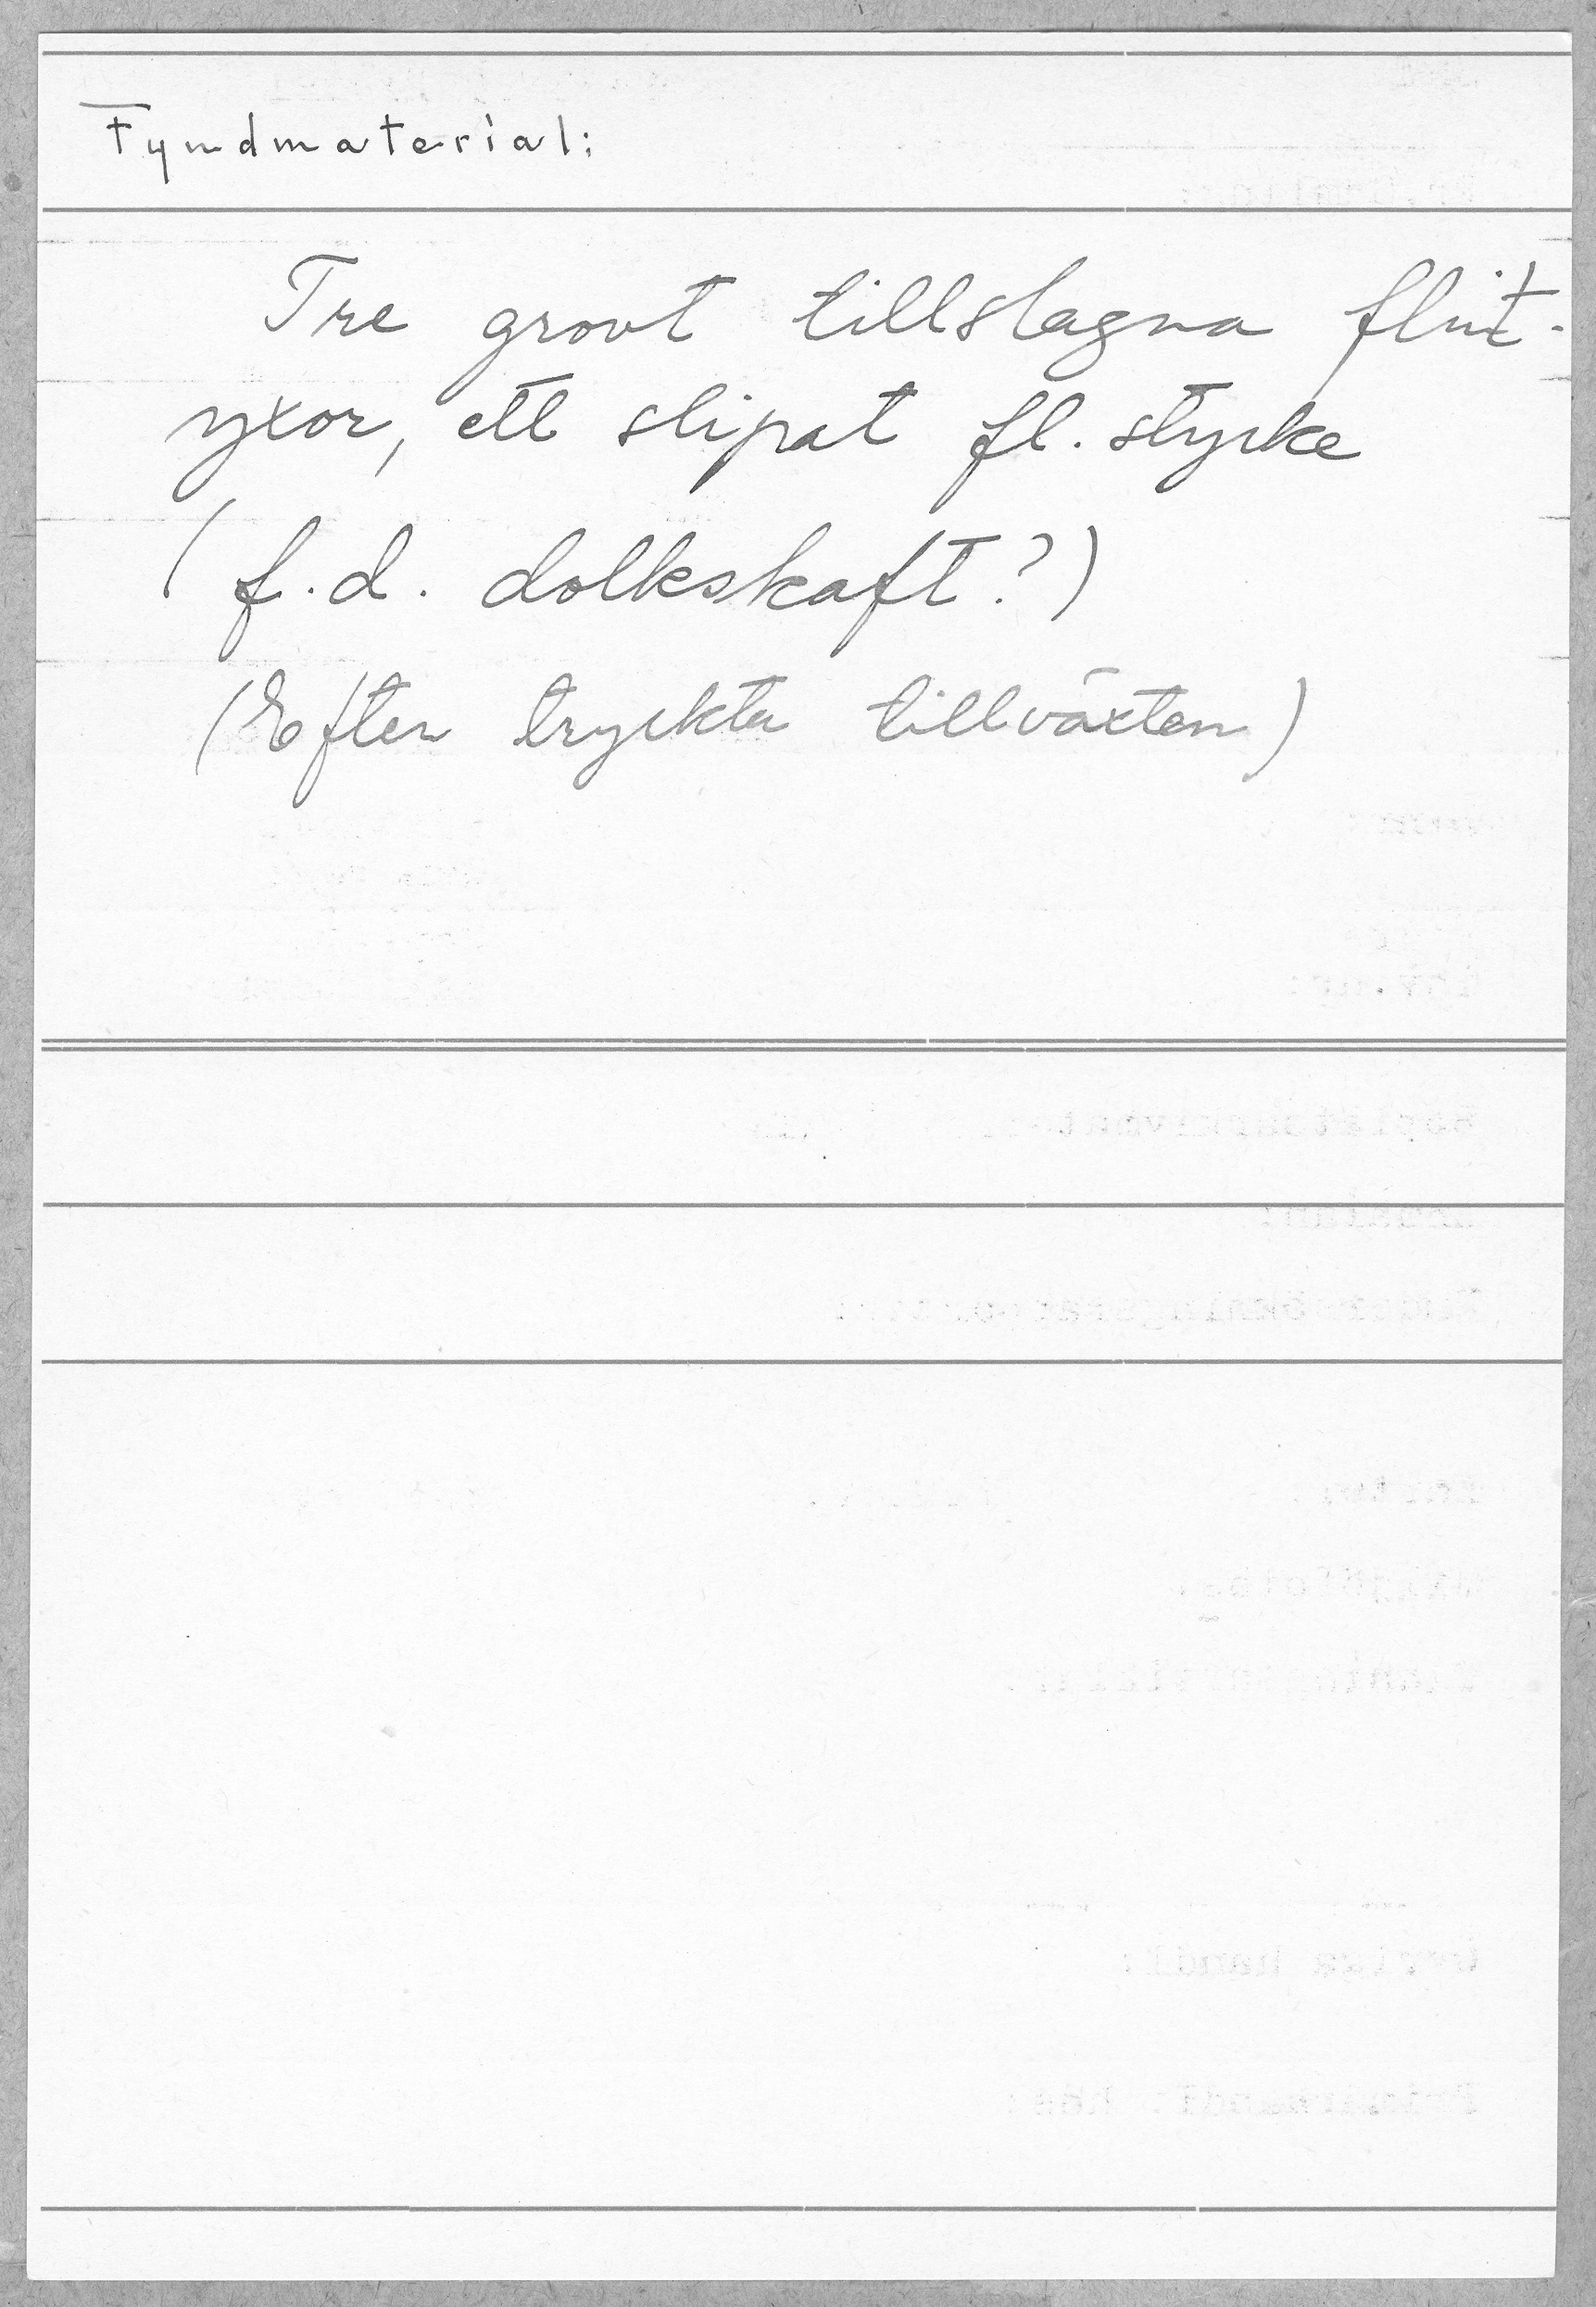 Fyndmaterial:
Tre grovt tillslagna flint-
yxor, ett slipat fl. stycke
(f.d. dolkskaft?)
(Efter tryckta tillväxten)